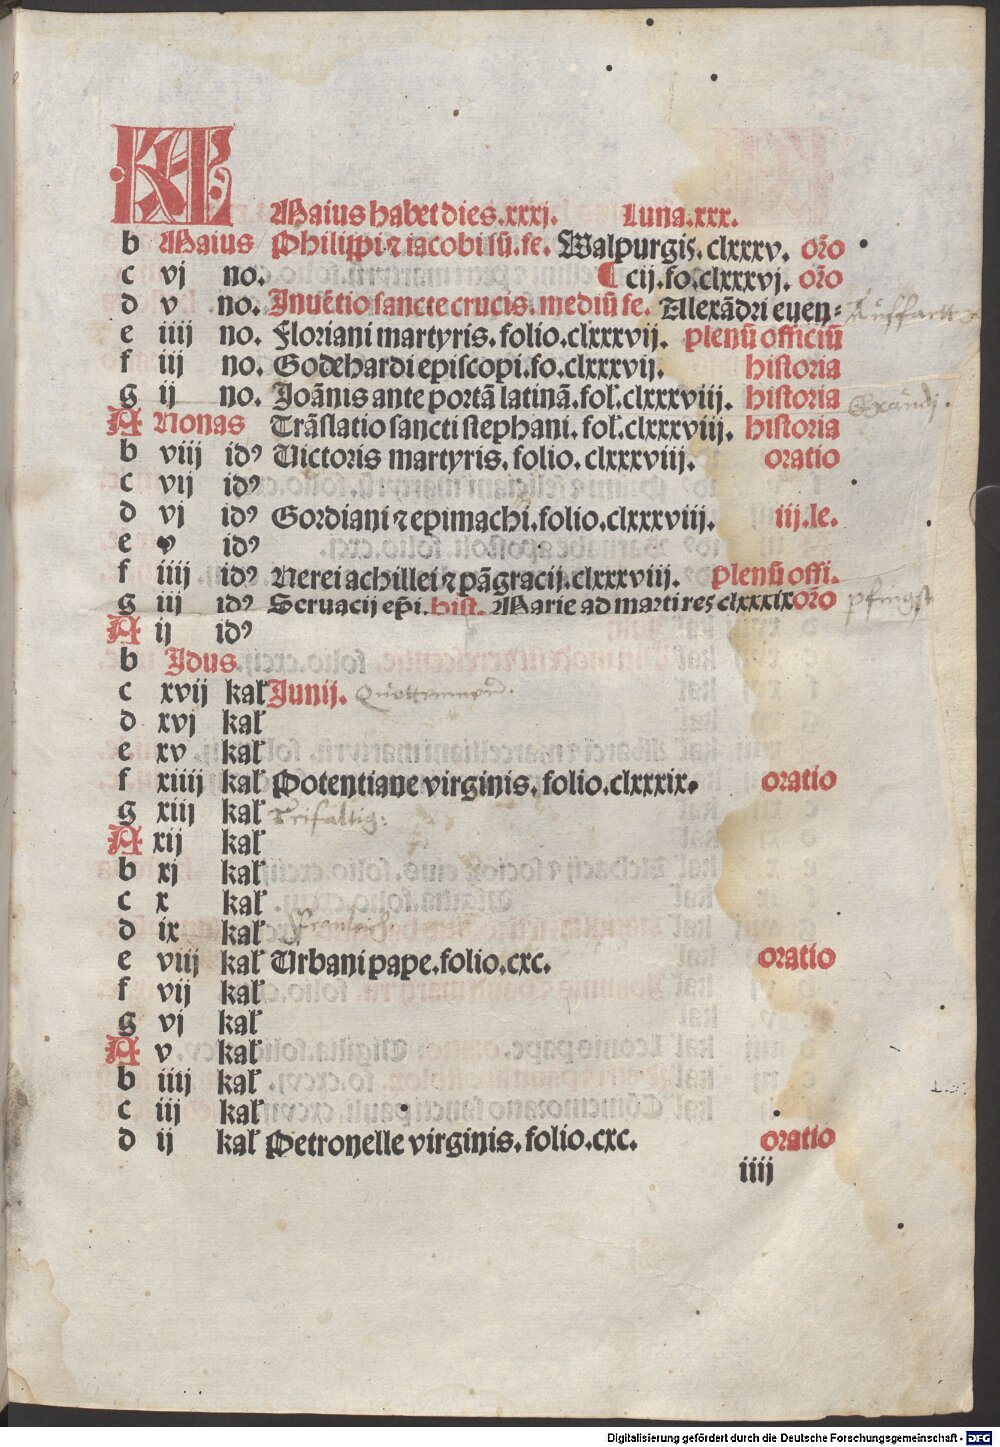 KL Maius habet dies.xxxj. Luna.xxx.
b Maius Philippi ⁊ iacobi sū.fe. Walpurgis.clxxxv. orō
c vj no. ¶ cij.fo.clxxxvj. orō
d v no. Inuētio sancte crucis. mediū fe. Alexādri euen-
e iiij no. Floriani martyris. folio.clxxxvij. plenū officiū
f iij no. Godehardi episcopi.fo.clxxxvij. historia
g ij no. Joānis ante portā latinā.fol.clxxxviij. historia
A Nonas Trāslatio sancti stephani. fol.clxxxviij. historia
b viij idꝰ Uictoris martyris. folio. clxxxviij. oratio
c vij idꝰ
d vj idꝰ Gordiani ⁊ epimachi.folio.clxxxviij. iij.le.
e v idꝰ
f iiij idꝰ Nerei achillei ⁊ pāgracij.clxxxviij. plenū offi.
g iij idꝰ Seruacij ep̄i. hist. Marie ad martires clxxxix orō pfingst
A ij idꝰ
b Idus
c xvij kal Junij.
d xvj kal
e xv kal
f xiiij kal Potentiane virginis. folio.clxxxix. oratio
g xiij kal Trifaltig:
A xij kal
b xj kal
c x kal
d ix kal
e viij kal Urbani pape.folio.cxc. oratio
f vij kal
g vj kal
A v kal
b iiij kal
c iij kal
d ij kal Petronelle virginis. folio.cxc. oratio
iiij
Digitalisierung gefördert durch die Deutsche Forschungsgemeinschaft - DFG